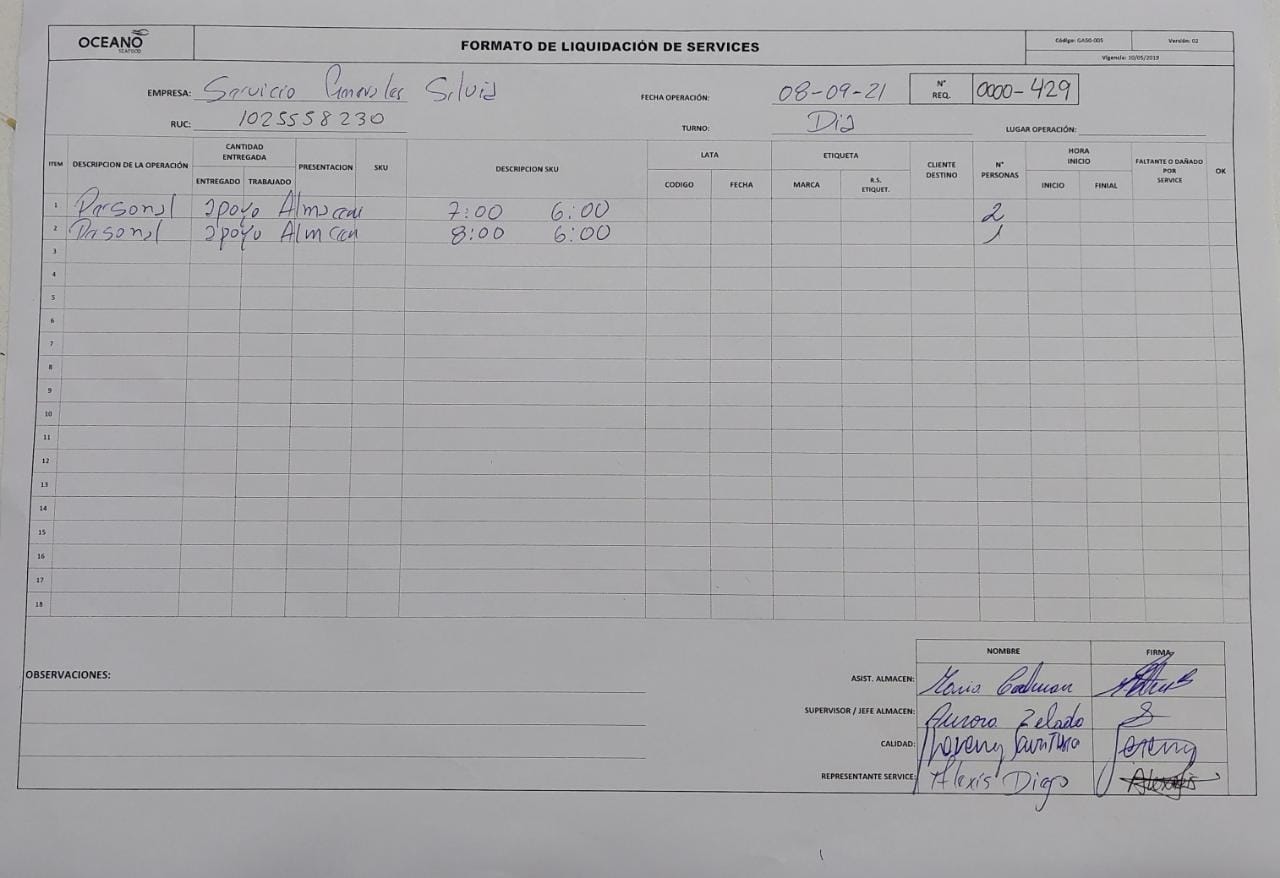 OCEANO
SEAFOOD
FORMATO DE LIQUIDACIÓN DE SERVICES
Código: GASG-005 Versión: 02
Vigencia: 10/05/2019
EMPRESA: Servicio Generales Silvia
FECHA OPERACIÓN: 08-09-21
N° REQ. 0000-429
RUC: 1025558230
TURNO: Dia
LUGAR OPERACIÓN:
ITEM DESCRIPCION DE LA OPERACIÓN CANTIDAD ENTREGADA PRESENTACION SKU DESCRIPCION SKU LATA ETIQUETA CLIENTE DESTINO N° PERSONAS HORA INICIO FALTANTE O DAÑADO POR SERVICE OK
ENTREGADO TRABAJADO CODIGO FECHA MARCA R.S. ETIQUET. INICIO FINIAL
1 Personal apoyo Almacen 7:00 6:00 2
2 Personal apoyo Almacen 8:00 6:00 1
3
4
5
6
7
8
9
10
11
12
13
14
15
16
17
18
NOMBRE FIRMA
OBSERVACIONES:
ASIST. ALMACEN: Maria
SUPERVISOR / JEFE ALMACEN: Aurora Zelada
CALIDAD:
REPRESENTANTE SERVICE: Alexis Diego Alexis